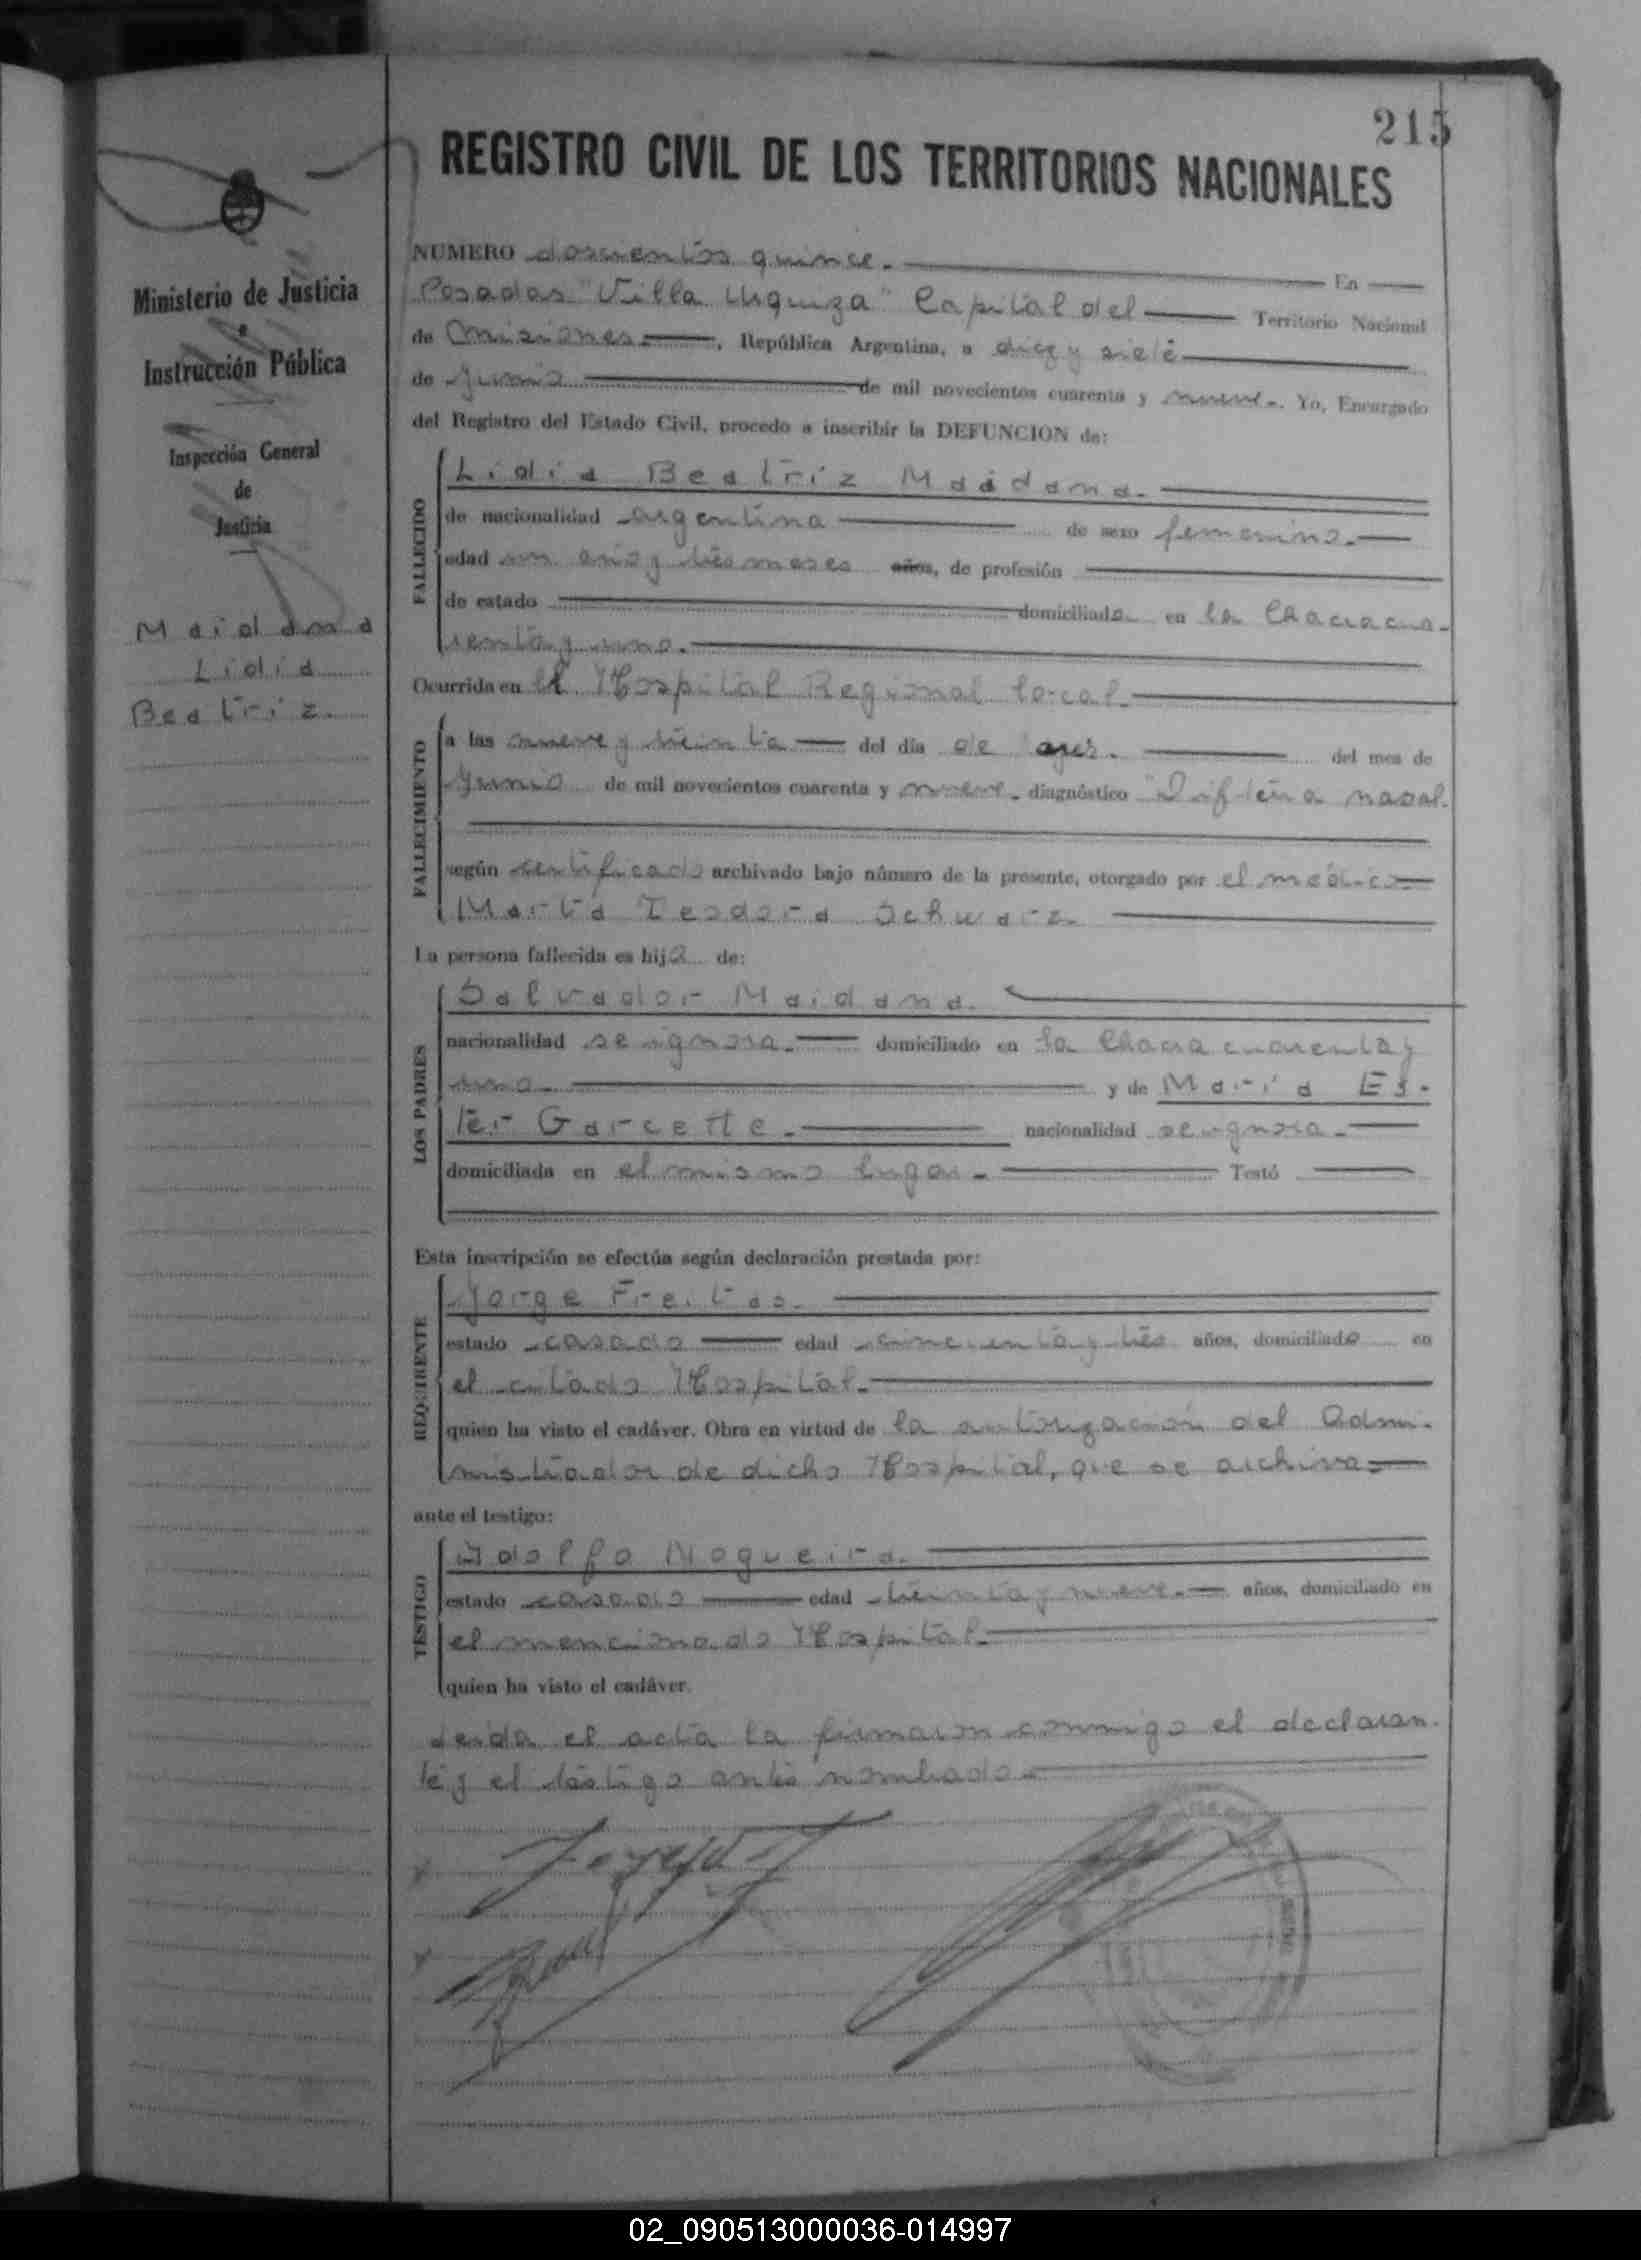 215
REGISTRO CIVIL DE LOS TERRITORIOS NACIONALES
Ministerio de Justicia
e
Instrucción Pública
Inspección General
de
Justicia
Maidana
Lidia
Beatriz.
NUMERO doscientos quince. En
Posadas "Villa Urquiza" Capital del Territorio Nacional
de Misiones, República Argentina, a diez y siete
de Junio de mil novecientos cuarenta y nueve. Yo, Encargado
del Registro del Estado Civil, procedo a inscribir la DEFUNCION de:
FALLECIDO
Lidia Beatriz Maidana.
de nacionalidad argentina de sexo femenino.
edad un año y tres meses años, de profesión
de estado domiciliada en la Chacra cua-
renta y uno.
Ocurrida en el Hospital Regional local.
FALLECIMIENTO
a las nueve y treinta del día de ayer. del mes de
Junio de mil novecientos cuarenta y nueve. diagnóstico "Difteria nasal.
según certificado archivado bajo número de la presente, otorgado por el médico
Marta Teodora Schwarz.
La persona fallecida es hija de:
LOS PADRES
Salvador Maidana.
nacionalidad se ignora. domiciliado en la Chacra cuarenta y
uno. y de María Es-
ter Garcette. nacionalidad se ignora.
domiciliada en el mismo lugar. Testó
Esta inscripción se efectúa según declaración prestada por:
REQUIRENTE
Jorge Freitas.
estado casado edad cincuenta y tres años, domiciliado en
el citado Hospital.
quien ha visto el cadáver. Obra en virtud de la autorización del Admi-
nistrador de dicho Hospital, que se archiva
ante el testigo:
TESTIGO
Adolfo Nogueira.
estado casado edad treinta y nueve. años, domiciliado en
el mencionado Hospital.
quien ha visto el cadáver.
Leida el acta la firmaron conmigo el declaran-
te y el testigo antes nombrado.
02_090513000036-014997